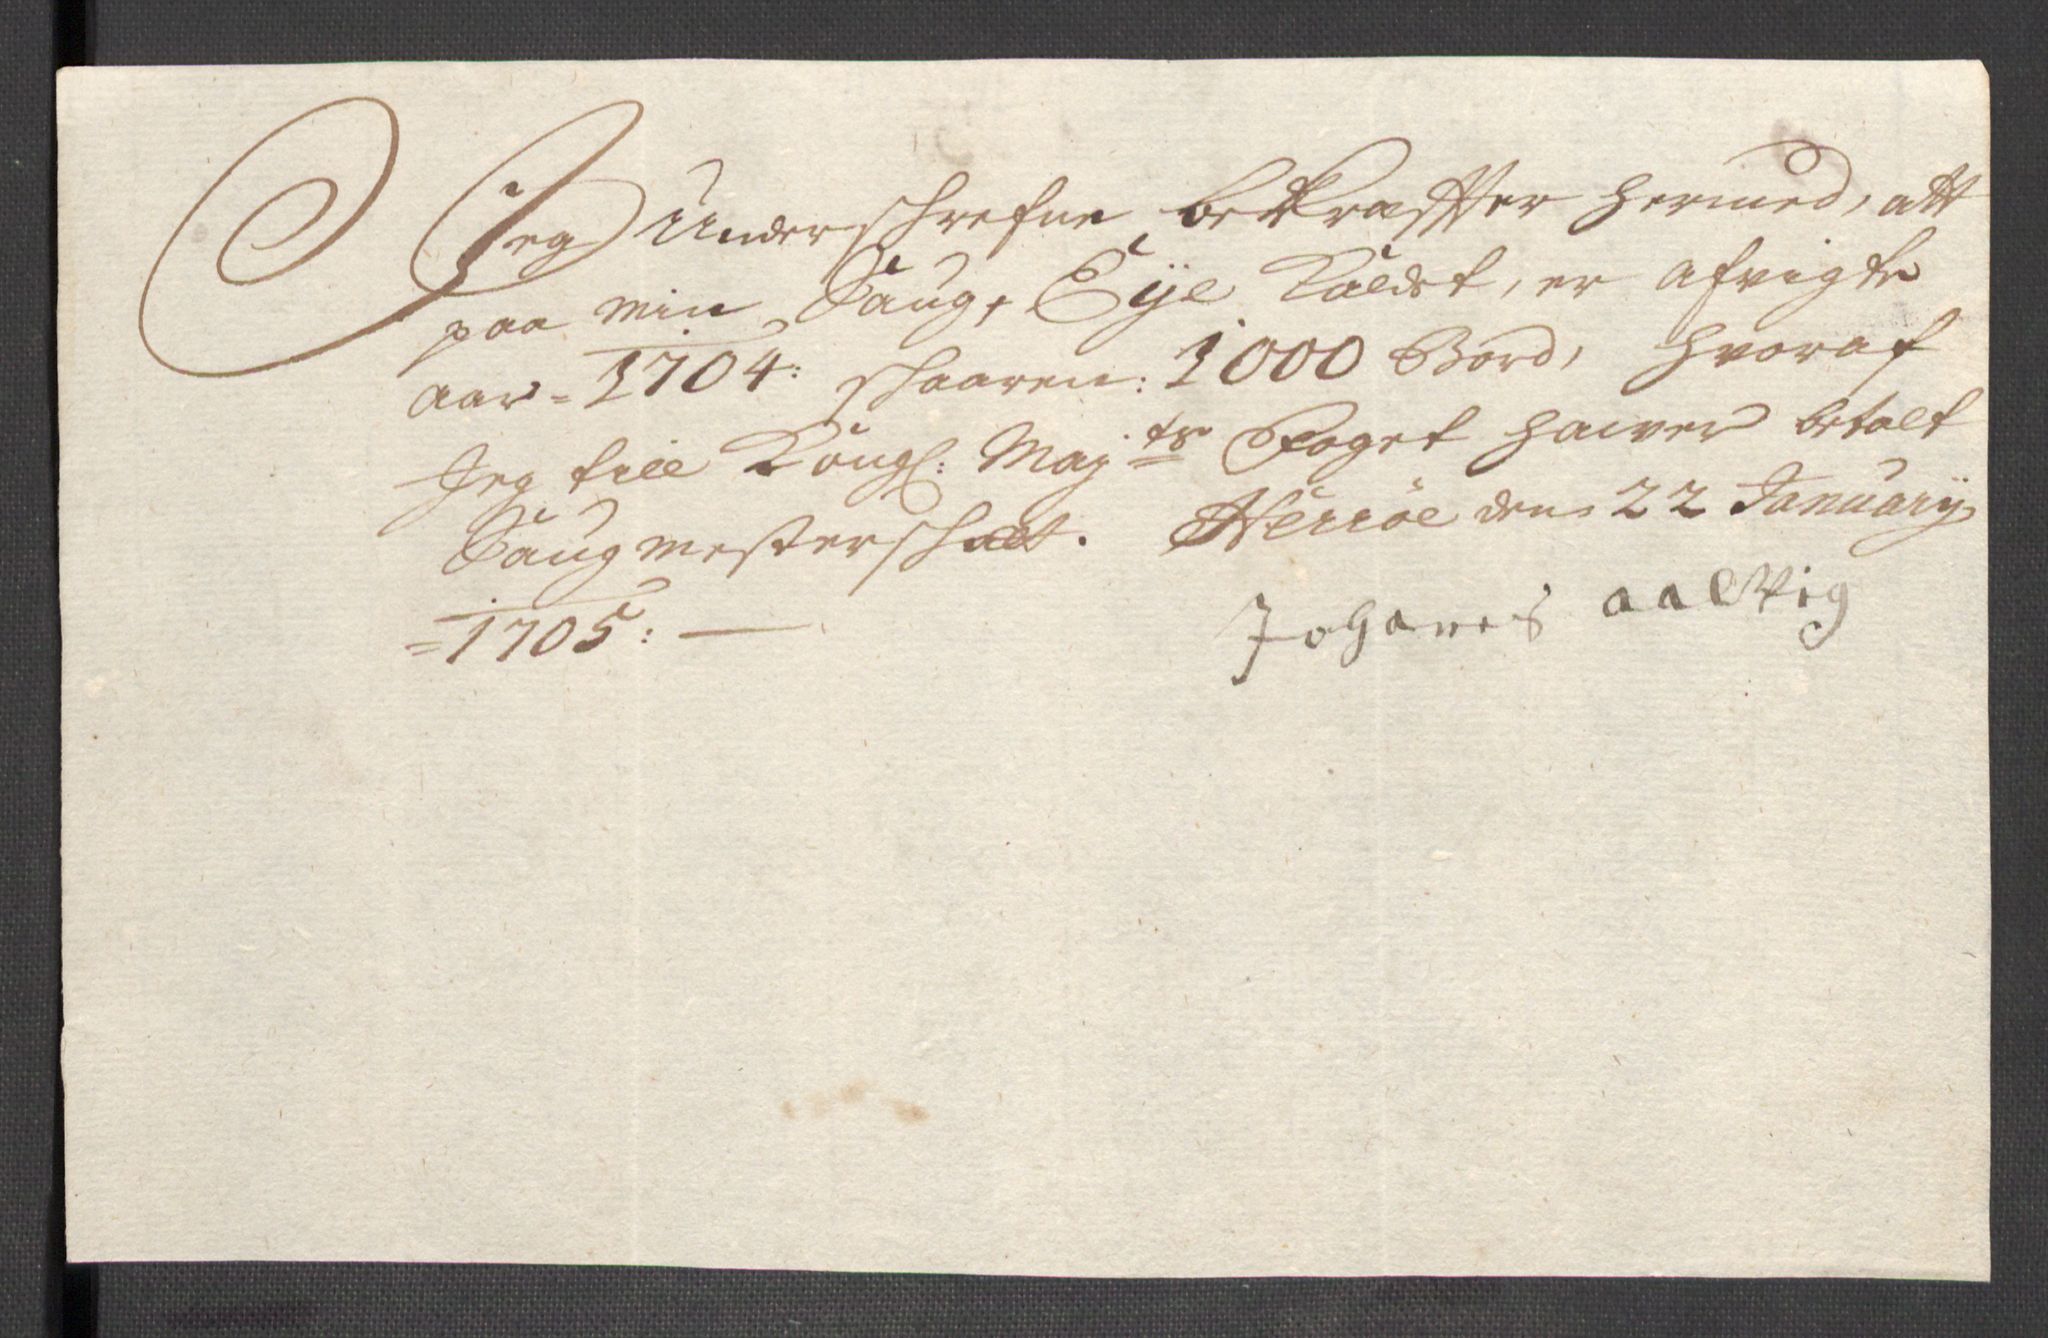 Jeg Underschrefne bekraffter hermed, att
paa min Saug, Eye Kaldet, er afvigte
aar = 1704: schaaren: 1000 Bord, hvoraf
Jeg till Kongl: Maj:ts Foget hawer betalt
Saugmesterschatt. Herröe den 22 January
= 1705: —
Johanes aalvig